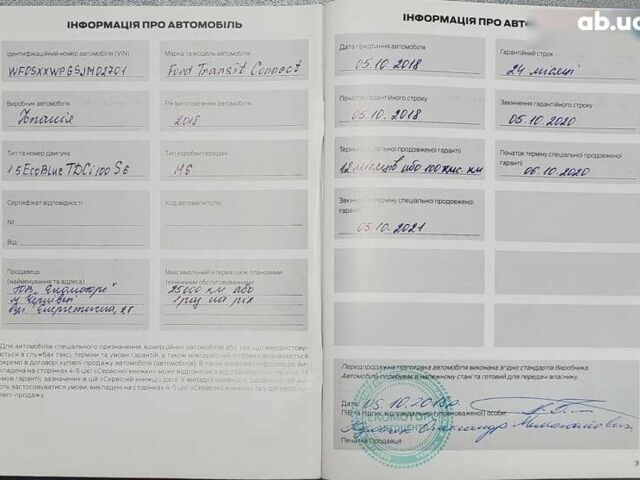 ІНФОРМАЦІЯ ПРО АВТОМОБІЛЬ
Ідентифікаційний номер автомобіля (VIN)
WF0SXXWPGSJM02701
Марка та модель автомобіля
Ford Transit Connect
Виробник автомобіля
Іспанія
Рік виготовлення автомобіля
2018
Тип та номер двигуна
1.5 EcoBlue TDCi 100 S6
Тип коробки передач
М6
Сертифікат відповідності
№
Від
Код автомагнітоли
Продавець
(найменування та адреса)
ТОВ "Екомоторс"
м. Чернівці
вул. Енергетична, 2Г
Максимальний інтервал між плановими
технічними обслуговуваннями
25000 км або
1 раз на рік
Для автомобілів спеціального призначення, комерційних автомобілів або тих, що використову-
ються в службах таксі, терміни та умови гарантії, а також міжсервісний інтервал визначаються
окремо в договорі купівлі-продажу автомобіля (автомобілів). В таких випадках інформація, ви-
кладена на сторінках 4-5 цієї «Сервісної книжки» може відрізнятися від
умов гарантії, зазначених в цій «Сервісній книжці»
застосовуватися умови, викладені на сторінках 4-5 цієї «Сервісної книжки» та у договорі купівлі-
продажу.
ІНФОРМАЦІЯ ПРО АВТО
ab.ua
Дата придбання автомобіля
05.10.2018
Гарантійний строк
24 місяці
Початок гарантійного строку
05.10.2018
Закінчення гарантійного строку
05.10.2020
Термін спеціальної продовженої гарантії
12 місяців або 100 тис. км
Початок терміну спеціальної продовженої
гарантії
06.10.2020
Закінчення терміну спеціальної продовженої
гарантії
05.10.2021
Передпродажна підготовка автомобіля виконана згідно стандартів Виробника.
Автомобіль перебуває в належному стані та готовий для передачі власнику.
Дата: 05.10.2018р.
ПІБ та підпис відповідальної (уповноваженої) особи:
Олександр Миколайович
Печатка Продавця
ЕКОМОТОРС
3